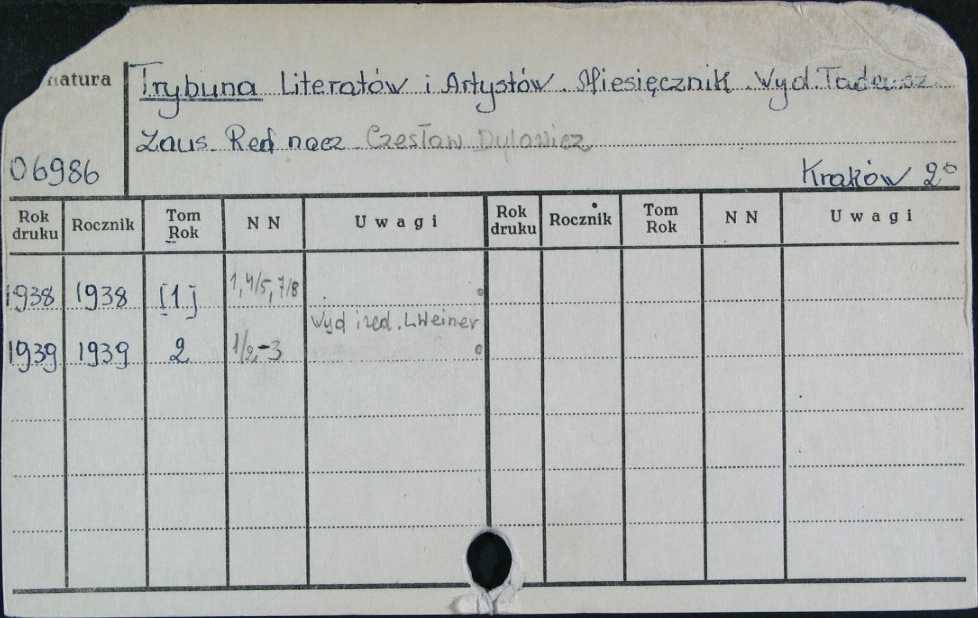 natura
Trybuna Literatów i Artystów. Miesięcznik. Wyd. Tadeusz
Zaus. Red nacz Czesław
06986
Kraków 2°
Rok druku Rocznik Tom Rok N N U w a g i Rok druku Rocznik Tom Rok N N U w a g i
1938 1938 [1] 1, 4/5, 7/8
Wyd i red. L. Weiner
1939 1939 2 1/2,-3